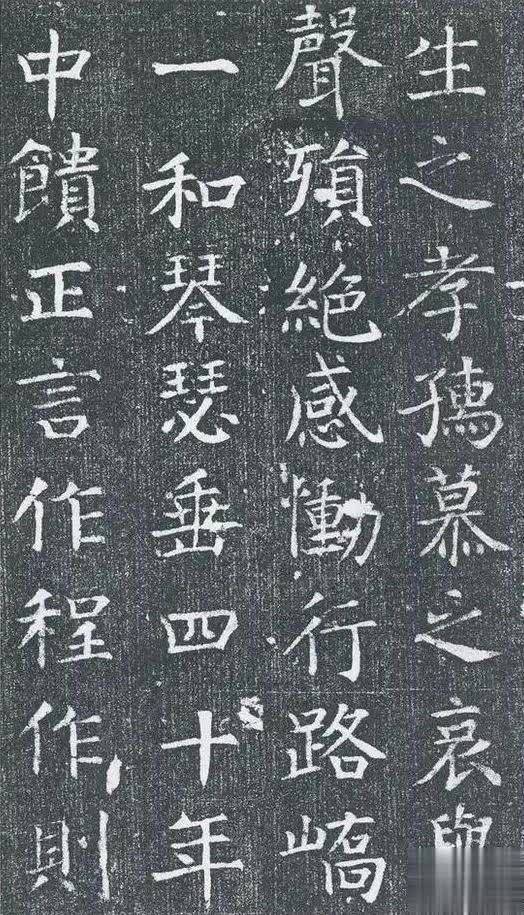 生之孝孺慕之哀
聲殞絶感慟行路嶠
一和琴瑟垂四十年
中饋正言作程作則